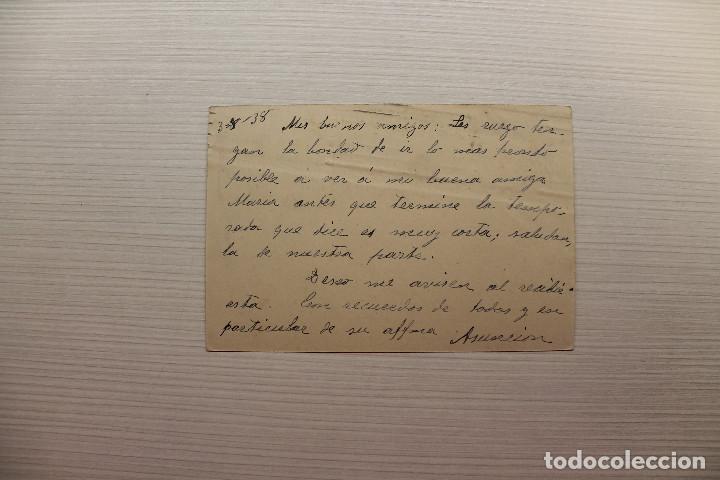 3-8-38 Mis buenos amigos: Les ruego ten-
gan la bondad de ir lo más pronto
posible a ver á mi buena amiga
Maria antes que termine la tempo-
rada que dice es muy corta; saludan,
la de nuestra parte.
Deseo me avisen al recibir
esta. Con recuerdos de todas y en
particular de su affma Asuncion
todocoleccion